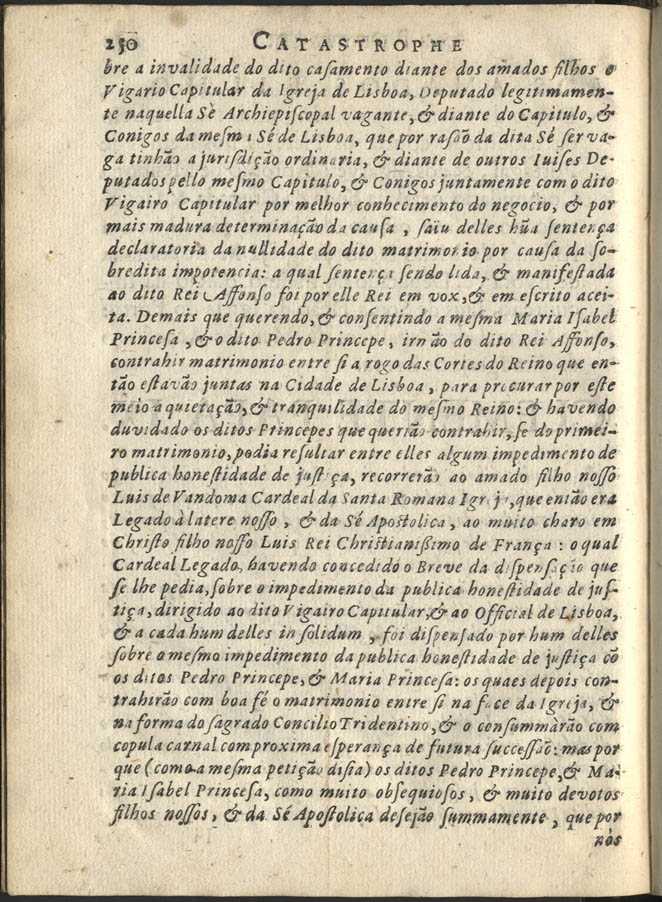 250 CATASTROPHE
bre a invalidade do dito casamento diante dos amados filhos o
Vigario Capitular da Igreja de Lisboa, Deputado legitimamen-
te naquella Sè Archiepiscopal vagante, & diante do Capitulo, &
Conigos da mesma Sé de Lisboa, que por rasão da dita Sé ser va-
ga tinhão a jurisdição ordinaria, & diante de outros Iuises De-
putados pello mesmo Capitulo, & Conigos juntamente com o dito
Vigairo Capitular por melhor conhecimento do negocio, & por
mais madura determinação da causa, saiu delles hũa sentença
declaratoria da nullidade do dito matrimonio por causa da so-
bredita impotencia: a qual sentença sendo lida, & manifestada
ao dito Rei Affonso foi por elle Rei em vox, & em escrito acei-
ta. Demais que querendo, & consentindo a mesma Maria Isabel
Princesa, & o dito Pedro Princepe, irmão do dito Rei Affonso,
contrahir matrimonio entre si a rogo das Cortes do Reino que en-
tão estavão juntas na Cidade de Lisboa, para procurar por este
meio a quietação, & tranquilidade do mesmo Reino: & havendo
duvidado os ditos Princepes que querião contrahir, se do primei-
ro matrimonio, podia resultar entre elles algum impedimento de
publica honestidade de justiça, recorrerão ao amado filho nosso
Luis de Vandoma Cardeal da Santa Romana Igreja, que então era
Legado à latere nosso, & da Sé Apostolica, ao muito charo em
Christo filho nosso Luis Rei Christianissimo de França: o qual
Cardeal Legado, havendo concedido o Breve da dispensação que
se lhe pedia, sobre o impedimento da publica honestidade de jus-
tiça, dirigido ao dito Vigairo Capitular, & ao Official de Lisboa,
& a cada hum delles in solidum, foi dispensado por hum delles
sobre o mesmo impedimento da publica honestidade de justiça cõ
os ditos Pedro Princepe, & Maria Princesa: os quaes depois con-
trahirão com boa fé o matrimonio entre si na face da Igreja, &
na forma do sagrado Concilio Tridentino, & o consummàrão com
copula carnal com proxima esperança de futura successão: mas por
que (como a mesma petição disia) os ditos Pedro Princepe, & Ma-
ria Isabel Princesa, como muito obsequiosos, & muito devotos
filhos nossos, & da Sé Apostolica desejão summamente, que por
nòs